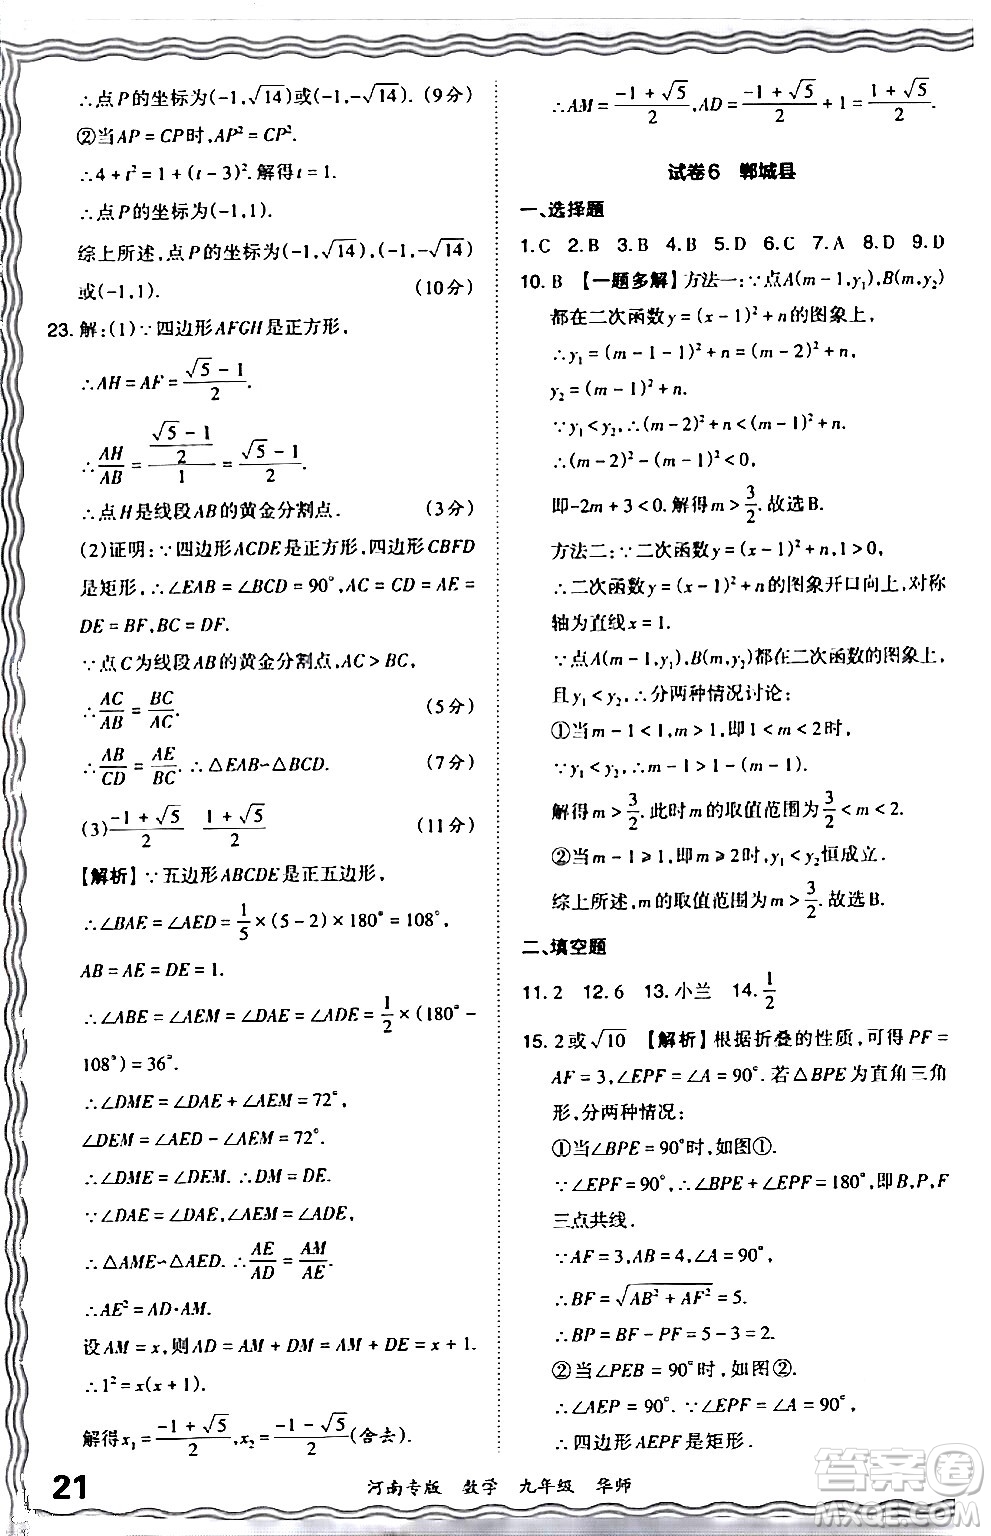 ∴点P的坐标为(-1,√14)或(-1,-√14). (9分)
②当AP=CP时,AP²=CP².
∴4+t²=1+(t-3)².解得t=1.
∴点P的坐标为(-1,1).
综上所述,点P的坐标为(-1,√14),(-1,-√14)
或(-1,1). (10分)
23.解:(1)∵四边形AFGH是正方形,
∴AH=AF=(√5-1)/2.
∴AH/AB=((√5-1)/2)/1=(√5-1)/2.
∴点H是线段AB的黄金分割点. (3分)
(2)证明:∵四边形ACDE是正方形,四边形CBFD
是矩形,∴∠EAB=∠BCD=90°,AC=CD=AE=
DE=BF,BC=DF.
∵点C为线段AB的黄金分割点,AC>BC,
∴AC/AB=BC/AC. (5分)
∴AB/CD=AE/BC.∴△EAB∽△BCD. (7分)
(3)(-1+√5)/2 (1+√5)/2 (11分)
【解析】∵五边形ABCDE是正五边形,
∴∠BAE=∠AED=1/5×(5-2)×180°=108°,
AB=AE=DE=1.
∴∠ABE=∠AEM=∠DAE=∠ADE=1/2×(180°-
108°)=36°.
∴∠DME=∠DAE+∠AEM=72°,
∠DEM=∠AED-∠AEM=72°.
∴∠DME=∠DEM.∴DM=DE.
∵∠DAE=∠DAE,∠AEM=∠ADE,
∴△AME∽△AED.∴AE/AD=AM/AE.
∴AE²=AD·AM.
设AM=x,则AD=AM+DM=AM+DE=x+1.
∴1²=x(x+1).
解得x₁=(-1+√5)/2,x₂=(-1-√5)/2(舍去).
∴AM=(-1+√5)/2,AD=(-1+√5)/2+1=(1+√5)/2.
试卷6 郸城县
一、选择题
1.C 2.B 3.B 4.B 5.D 6.C 7.A 8.D 9.D
10.B 【一题多解】方法一:∵点A(m-1,y₁),B(m,y₂)
都在二次函数y=(x-1)²+n的图象上,
∴y₁=(m-1-1)²+n=(m-2)²+n,
y₂=(m-1)²+n.
∵y₁<y₂,∴(m-2)²+n<(m-1)²+n.
∴(m-2)²-(m-1)²<0,
即-2m+3<0.解得m>3/2.故选B.
方法二:∵二次函数y=(x-1)²+n,1>0,
∴二次函数y=(x-1)²+n的图象开口向上,对称
轴为直线x=1.
∵点A(m-1,y₁),B(m,y₂)都在二次函数的图象上,
且y₁<y₂,∴分两种情况讨论:
①当m-1<1,m>1,即1<m<2时,
∵y₁<y₂,∴m-1>1-(m-1).
解得m>3/2.此时m的取值范围为3/2<m<2.
②当m-1⩾1,即m⩾2时,y₁<y₂恒成立.
综上所述,m的取值范围为m>3/2.故选B.
二、填空题
11.2 12.6 13.小兰 14.1/2
15.2或√10 【解析】根据折叠的性质,可得PF=
AF=3,∠EPF=∠A=90°.若△BPE为直角三角
形,分两种情况:
①当∠BPE=90°时,如图①.
∵∠EPF=90°,∴∠BPE+∠EPF=180°,即B,P,F
三点共线.
∵AF=3,AB=4,∠A=90°,
∴BF=√(AB²+AF²)=5.
∴BP=BF-PF=5-3=2.
②当∠PEB=90°时,如图②.
∴∠AEP=90°.∵∠EPF=∠A=90°,
∴四边形AEPF是矩形.
21 河南专版 数学 九年级 华师